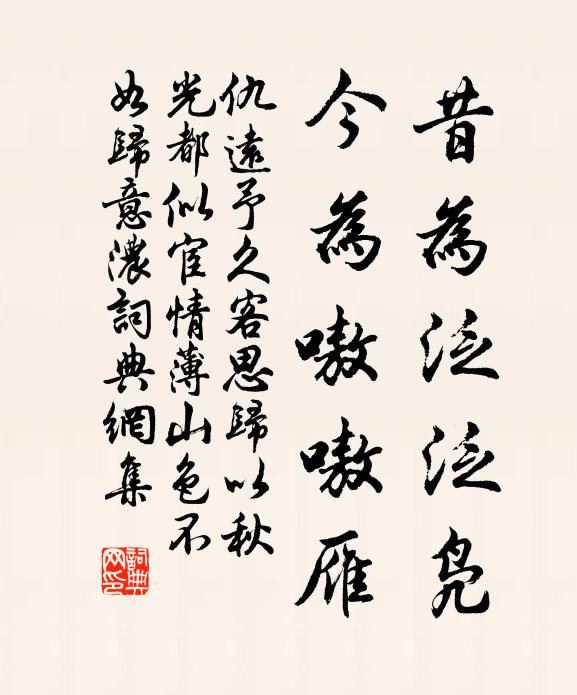 昔為泛泛鳧
今為嗷嗷雁
仇遠予久客思歸以秋
光都似宦情薄山色不
如歸意濃詞典網集
詞典
网印